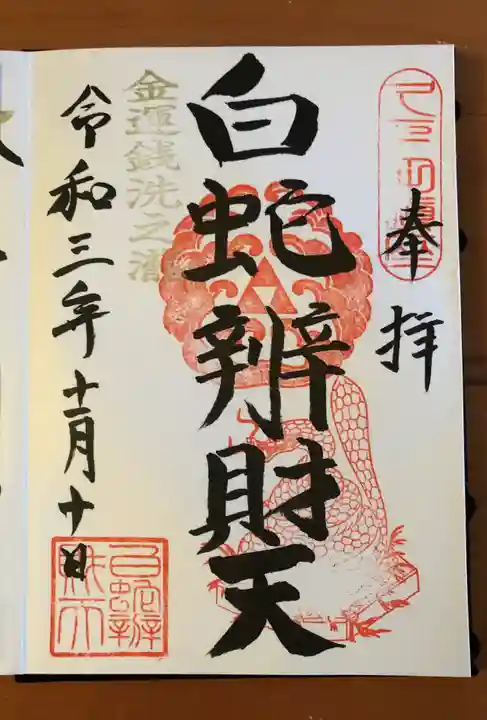 奉拝
白蛇辨財天
金運銭洗之滝
令和三年十一月十日
白蛇辨財天